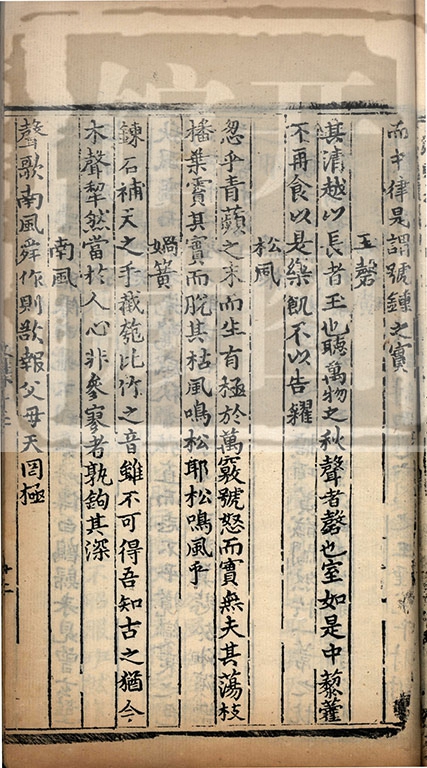 而中律是謂號鍾之實
玉磬
其清越以長者玉也聽萬物之秋聲者磬也室如是中藜藿
不再食以是樂飢不以告糴
松風
忽乎青蘋之末而生有極於萬竅號怒而實無夫其蕩枝
播葉實其實而脫其枯風鳴松耶松鳴風乎
媧簧
鍊石補天之手截匏比竹之音雖不可得吾知古之猶今
木聲犁然當於人心非參寥者孰鉤其深
南風
聲歌南風舜作則欲報父母天罔極